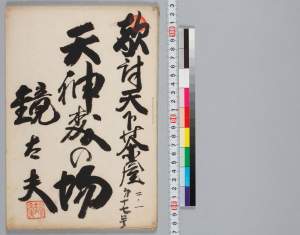 敵討天下茶屋
二ノ一
第十七号
天神森の場
鏡太夫